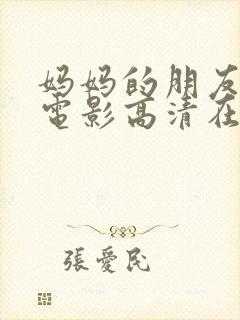 妈妈的朋友
電影高清在
張愛民